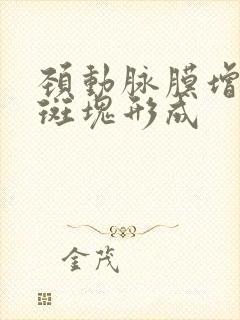 頚動脉膜增
斑塊形成
金茂